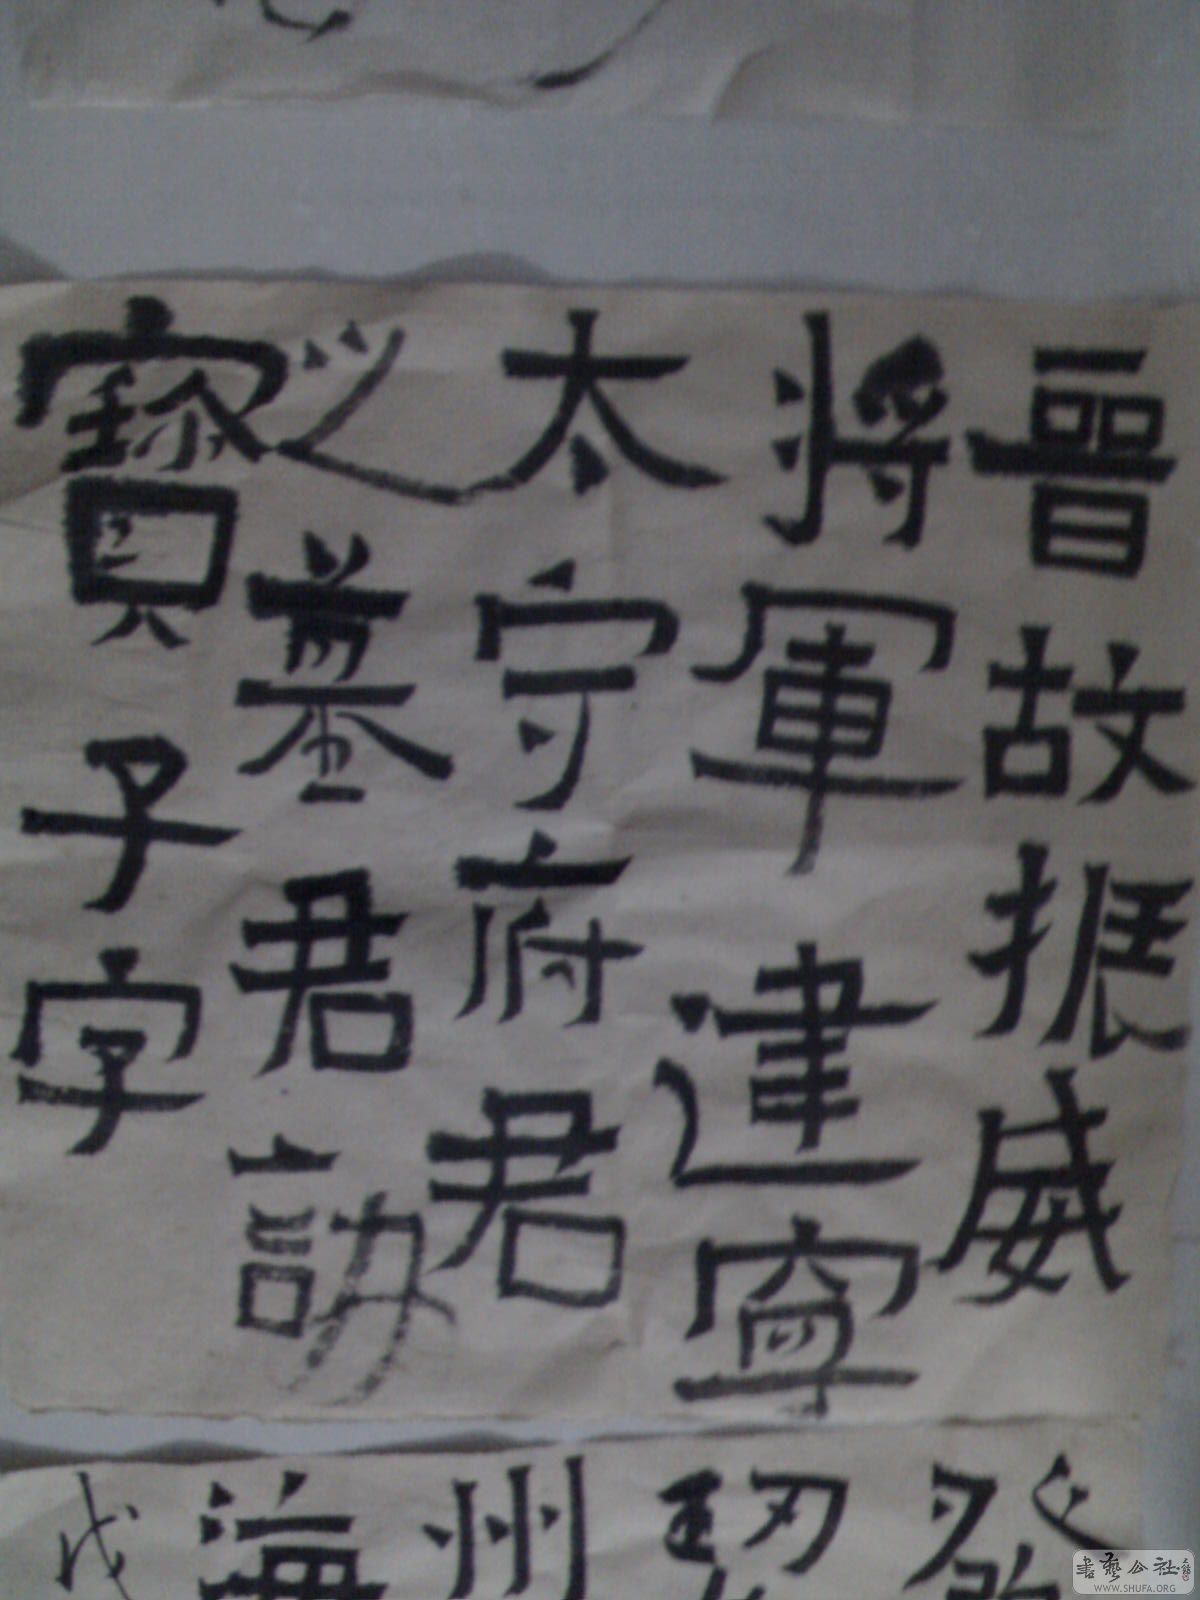 晉故振威
將軍建寧
太守府君
之墓君
寶子字
州
海
書藝公社
WWW.SHUFA.ORG